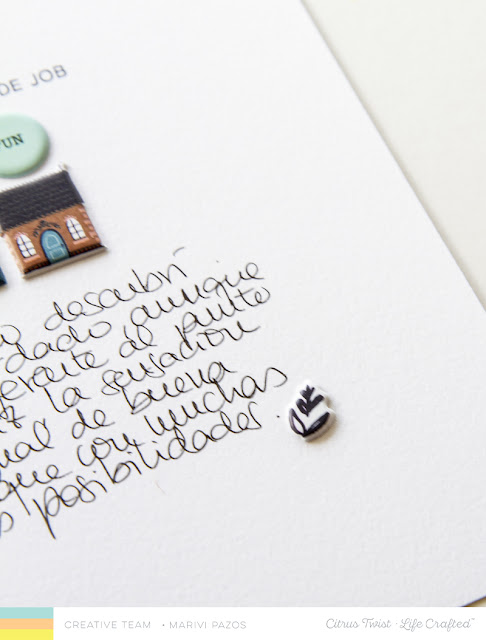 DE JOB
FUN
descubrí
dado aunque
al punto
la sensación
de buena
que con muchas
posibilidades.
CREATIVE TEAM • MARIVI PAZOS
Citrus Twist · Life Crafted™